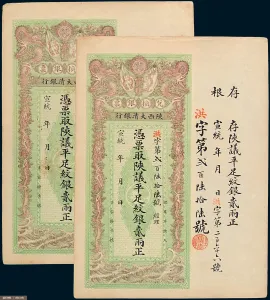 行銀清大西陝
憑票取陝議平足紋銀貳兩正
宣統 年 月 日
行銀清大西陝
洪字第貳百陸拾陸號
憑票取陝議平足紋銀貳兩正
宣統 年 月 日
存根
存陝議平足紋銀貳兩正
宣統 年 月 日洪字第二百六十六號
洪字第貳百陸拾陸號